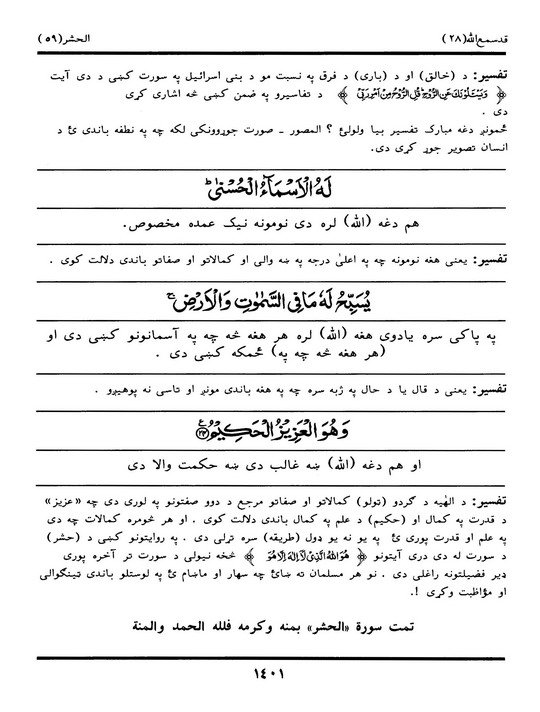 قدسمع الله (۲۸)
الحشر (۵۹)
تفسير: د (خالق) او د (باري) د فرق په نسبت مو د بني اسرائيل په سورت کښي د دې آيت
﴿ وَيَسْئَلُونَكَ عَنِ الرُّوحِ قُلِ الرُّوحُ مِنْ أَمْرِ رَبِّي ﴾ د تفاسيرو په ضمن کښي څه اشاري کړي
دي .
ځموږ دغه مبارک تفسير بيا ولولئ ؟ المصور ـ صورت جوړوونکي لکه چه په نطفه باندي ئ د
انسان تصوير جوړ کړي دي.
لَهُ الْاَسْمَآءُ الْحُسْنٰى ؕ
هم دغه (الله) لره دي نومونه نيک عمده مخصوص.
تفسير: يعني هغه نومونه چه په اعلىٰ درجه په ښه والي او کمالاتو او صفاتو باندي دلالت کوي .
يُسَبِّحُ لَهٗ مَا فِي السَّمٰوٰتِ وَالْاَرْضِ ۚ
په پاکي سره يادوي هغه (الله) لره هر هغه څه چه په آسمانونو کښي دي او
(هر هغه څه چه په) ځمکه کښي دي .
تفسير: يعني د قال يا د حال په ژبه سره چه په هغه باندي مونږ او تاسي نه پوهيږو .
وَهُوَ الْعَزِيْزُ الْحَكِيْمُ ﴿۲۴﴾
او هم دغه (الله) ښه غالب دي ښه حکمت والا دي
تفسير: د الهٰيه د ګردو (ټولو) کمالاتو او صفاتو مرجع د دوو صفتونو په لوري دي چه «عزيز»
د قدرت په کمال او (حکيم) د علم په کمال باندي دلالت کوي . او هر څومره کمالات چه دي
په علم او قدرت پوري ئ په يو نه يو ډول (طريقه) سره تړلي دي . په روايتونو کښي د (حشر)
د سورت له دې درې آيتونو ﴿ هُوَ اللّٰهُ الَّذِيْ لَآ اِلٰهَ اِلَّا هُوَ ﴾ څخه نيولي د سورت تر آخره پوري
ډير فضيلتونه راغلي دي . نو هر مسلمان ته ښائ چه سهار او ماښام ئ په لوستلو باندي ټينګوالي
او مؤاظبت وکړي !.
تمت سورة «الحشر» بمنه وكرمه فلله الحمد والمنة
۱۴۰۱